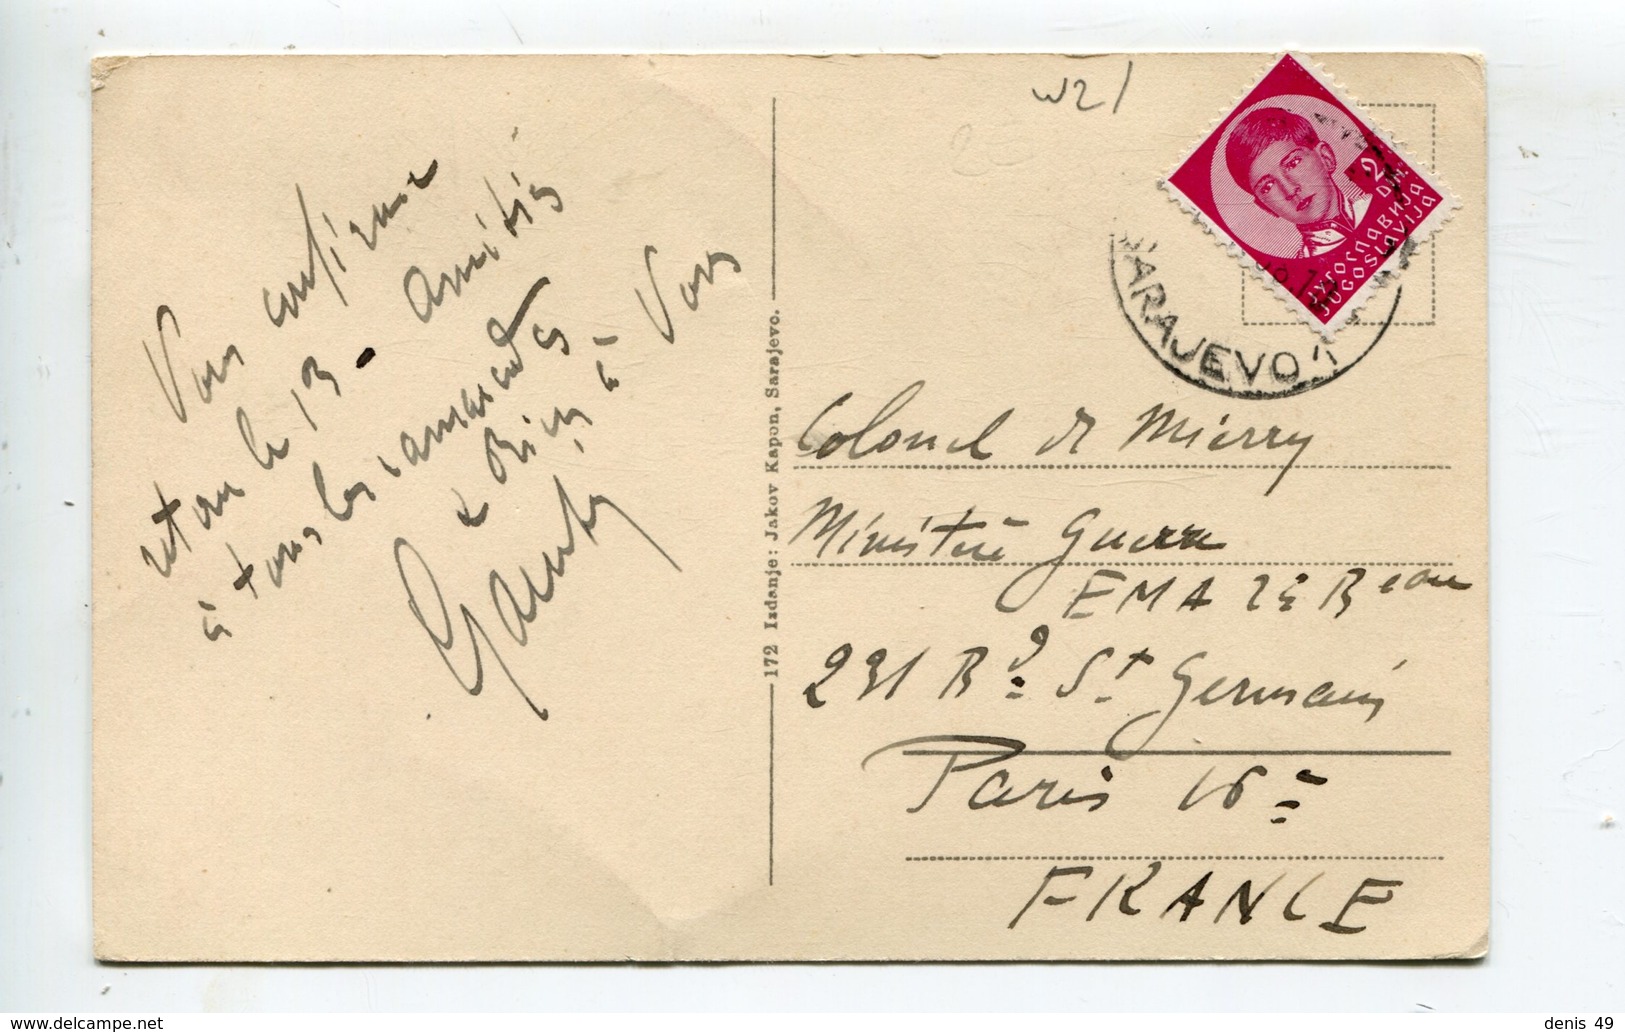 Vous confirme
retour le 13 - Amitiés
à tous les camarades
et Bien à Vous
172 Izdanje: Jakov Kapon, Sarajevo.
W21
2 DIN.
ЈУГОСЛАВИЈА
JUGOSLAVIJA
SARAJEVO 1
Colonel de Mierry
Ministère Guerre
EMA 2e Bureau
231 Bd St Germain
Paris
FRANCE
denis 49
www.delcampe.net